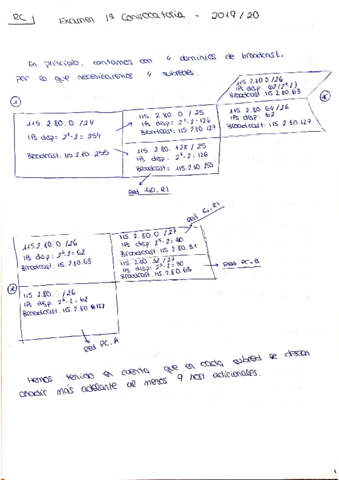 RC Examen 1ª Convocatoria - 2019/20
En principio, contamos con 4 dominios de broadcast,
por lo que necesitaremos 4 subredes.
1
115.2.80.0/24
IPs disp: 2⁸-2 = 254
Broadcast: 115.2.80.255
115.2.80.0/25
IPs disp: 2⁷-2 = 126
Broadcast: 115.2.80.127
115.2.80.128/25
IPs disp: 2⁷-2 = 126
Broadcast: 115.2.80.255
Red E0.R1
115.2.80.0/26
IPs disp: 62 (2⁶-2)
Broadcast: 115.2.80.63
115.2.80.64/26
IPs disp: 62
Broadcast: 115.2.80.127
115.2.80.0/26
IPs disp: 2⁶-2 = 62
Broadcast: 115.2.80.63
115.2.80.0/27
IPs disp: 2⁵-2 = 30
Broadcast: 115.2.80.31
Red
115.2.80.32/27
IPs disp: 2⁵-2 = 30
Broadcast: 115.2.80.63
Red PC.B
115.2.80. /26
IPs disp: 2⁶-2 = 62
Broadcast: 115.2.80.127
Red PC.A
Hemos tenido en cuenta que en cada subred se desean
añadir más adelante al menos 9 host adicionales.